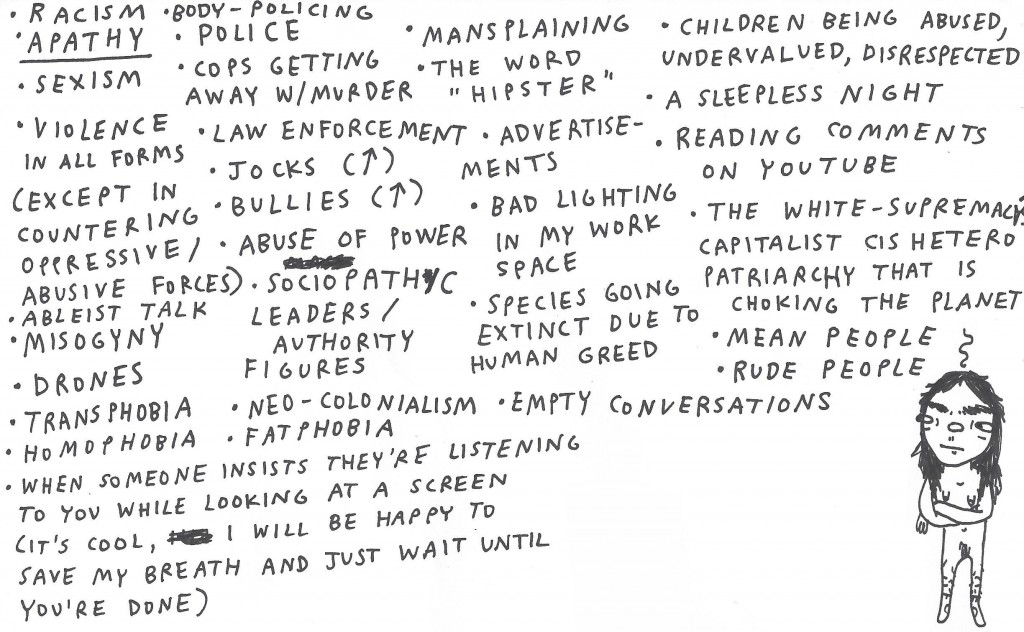 • RACISM
• APATHY
• SEXISM
• VIOLENCE
IN ALL FORMS
(EXCEPT IN
COUNTERING
OPPRESSIVE/
ABUSIVE FORCES)
• ABLEIST TALK
• MISOGYNY
• DRONES
• TRANSPHOBIA
• HOMOPHOBIA
• BODY-POLICING
• POLICE
• COPS GETTING
AWAY W/MURDER
• LAW ENFORCEMENT
• JOCKS (↑)
• BULLIES (↑)
• ABUSE OF POWER
• SOCIOPATHIC
LEADERS/
AUTHORITY
FIGURES
• NEO-COLONIALISM
• FATPHOBIA
• MANSPLAINING
• THE WORD
"HIPSTER"
• ADVERTISE-
MENTS
• BAD LIGHTING
IN MY WORK
SPACE
• SPECIES GOING
EXTINCT DUE TO
HUMAN GREED
• EMPTY CONVERSATIONS
• CHILDREN BEING ABUSED,
UNDERVALUED, DISRESPECTED
• A SLEEPLESS NIGHT
• READING COMMENTS
ON YOUTUBE
• THE WHITE-SUPREMACY
CAPITALIST CISHETERO
PATRIARCHY THAT IS
CHOKING THE PLANET
• MEAN PEOPLE
• RUDE PEOPLE
• WHEN SOMEONE INSISTS THEY'RE LISTENING
TO YOU WHILE LOOKING AT A SCREEN
(IT'S COOL, I WILL BE HAPPY TO
SAVE MY BREATH AND JUST WAIT UNTIL
YOU'RE DONE)